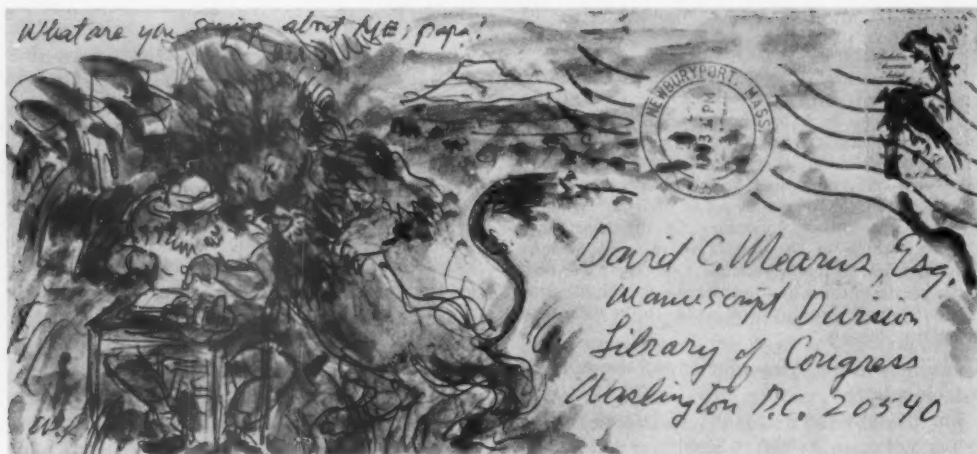 What are you saying about ME, papa?
NEWBURYPORT, MASS.
PM
David C. Mearns, Esq.
Manuscript Division
Library of Congress
Washington D.C. 20540